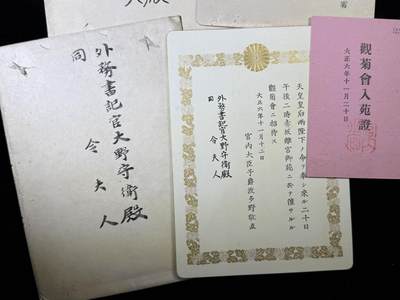 觀菊會入苑證
大正六年十一月二十日
天皇皇后兩陛下ノ命ヲ奉シ來ル二十日
午後二時赤坂離宮御苑ニ於テ催サルル
觀菊會ニ招待ス
大正六年十一月十二日
宮内大臣子爵波多野敬直
外務書記官大野守衛殿
同 令夫人
外務書記官大野守衛殿
同 令夫人